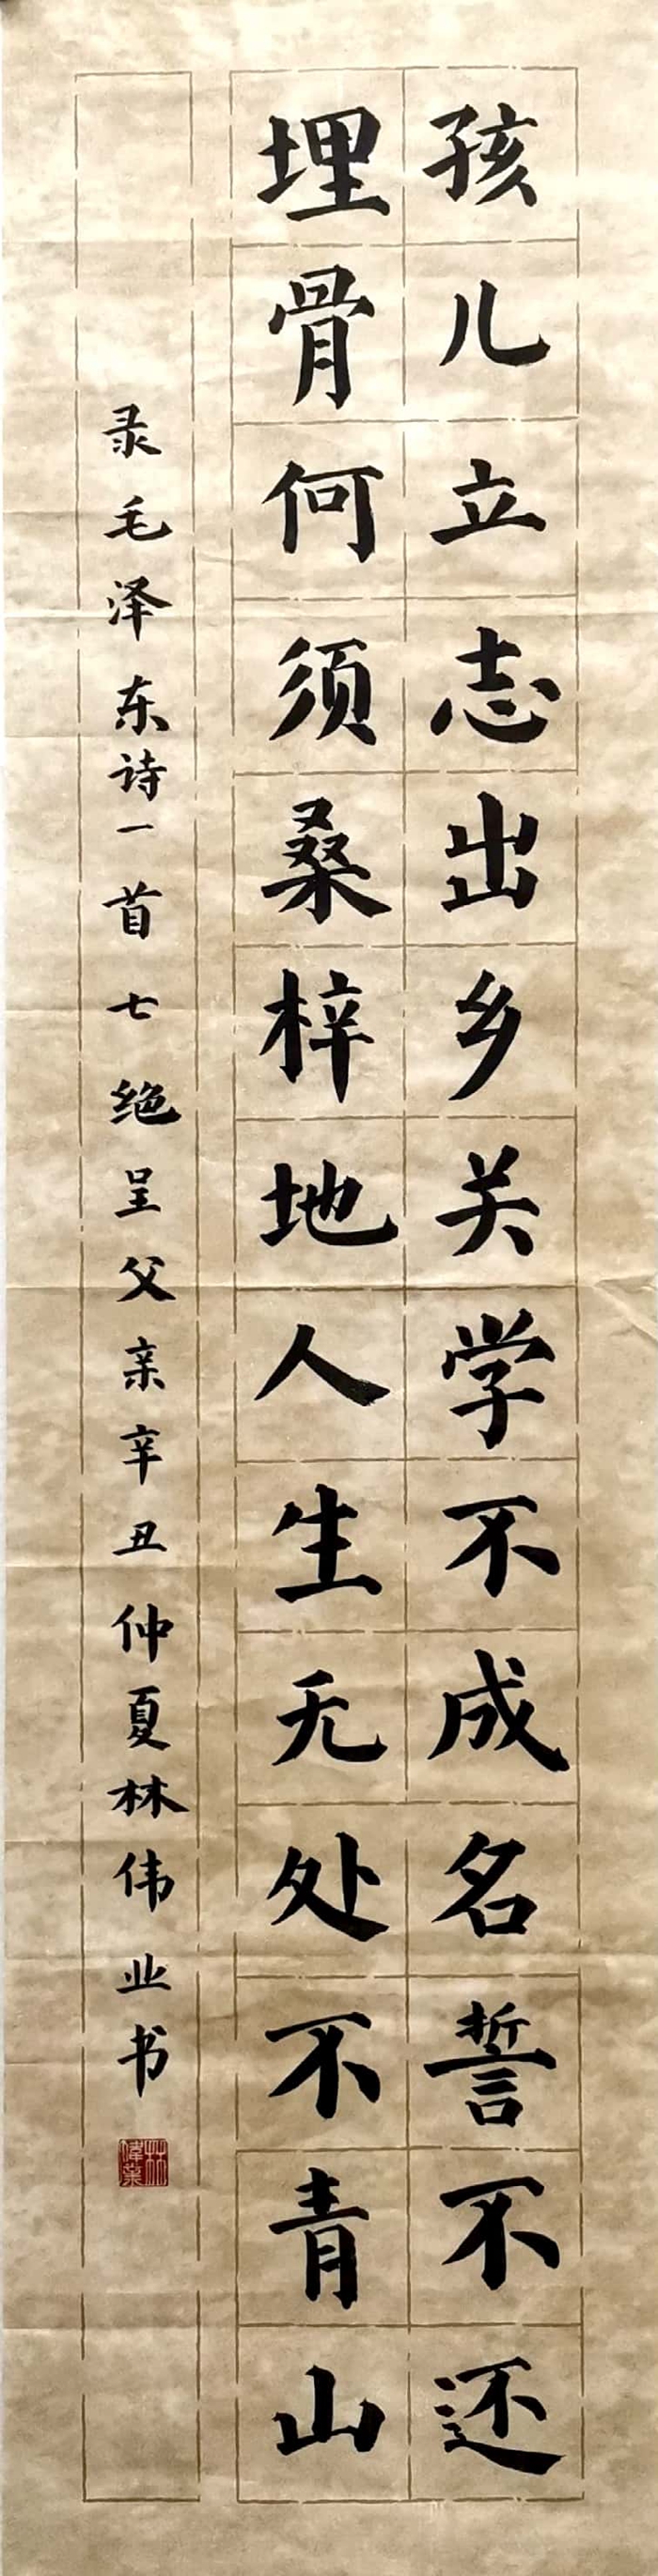 孩儿立志出乡关学不成名誓不还
埋骨何须桑梓地人生无处不青山
录毛泽东诗一首七绝呈父亲辛丑仲夏林伟业书
林偉業